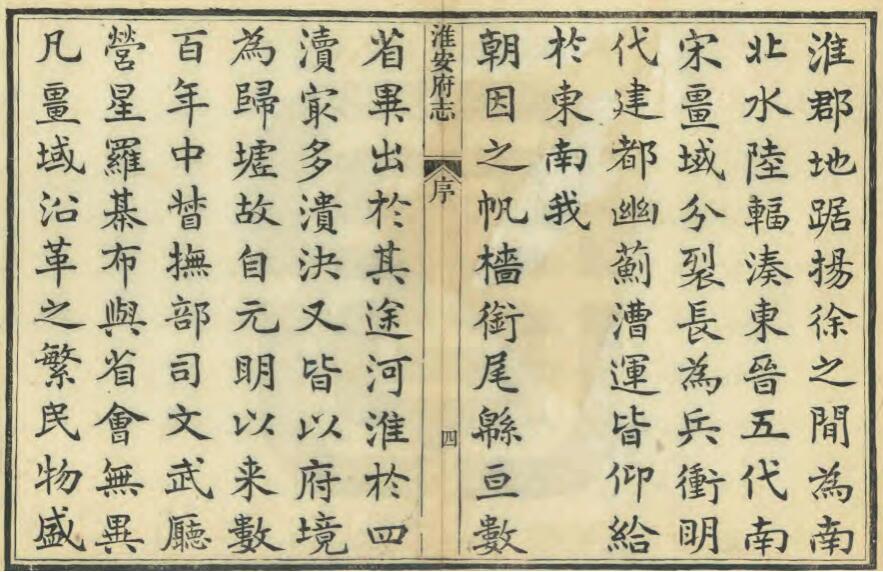 淮郡地踞揚徐之間為南
北水陸輻湊東晉五代南
宋畺域分裂長為兵衝明
代建都幽薊漕運皆仰給
於東南我
朝因之帆檣銜尾緜亘數
淮安府志
序
四
省畢出於其途河淮於四
瀆㝡多潰決又皆以府境
為歸墟故自元明以来數
百年中督撫部司文武廳
營星羅棊布與省會無異
凡畺域沿革之繁民物盛